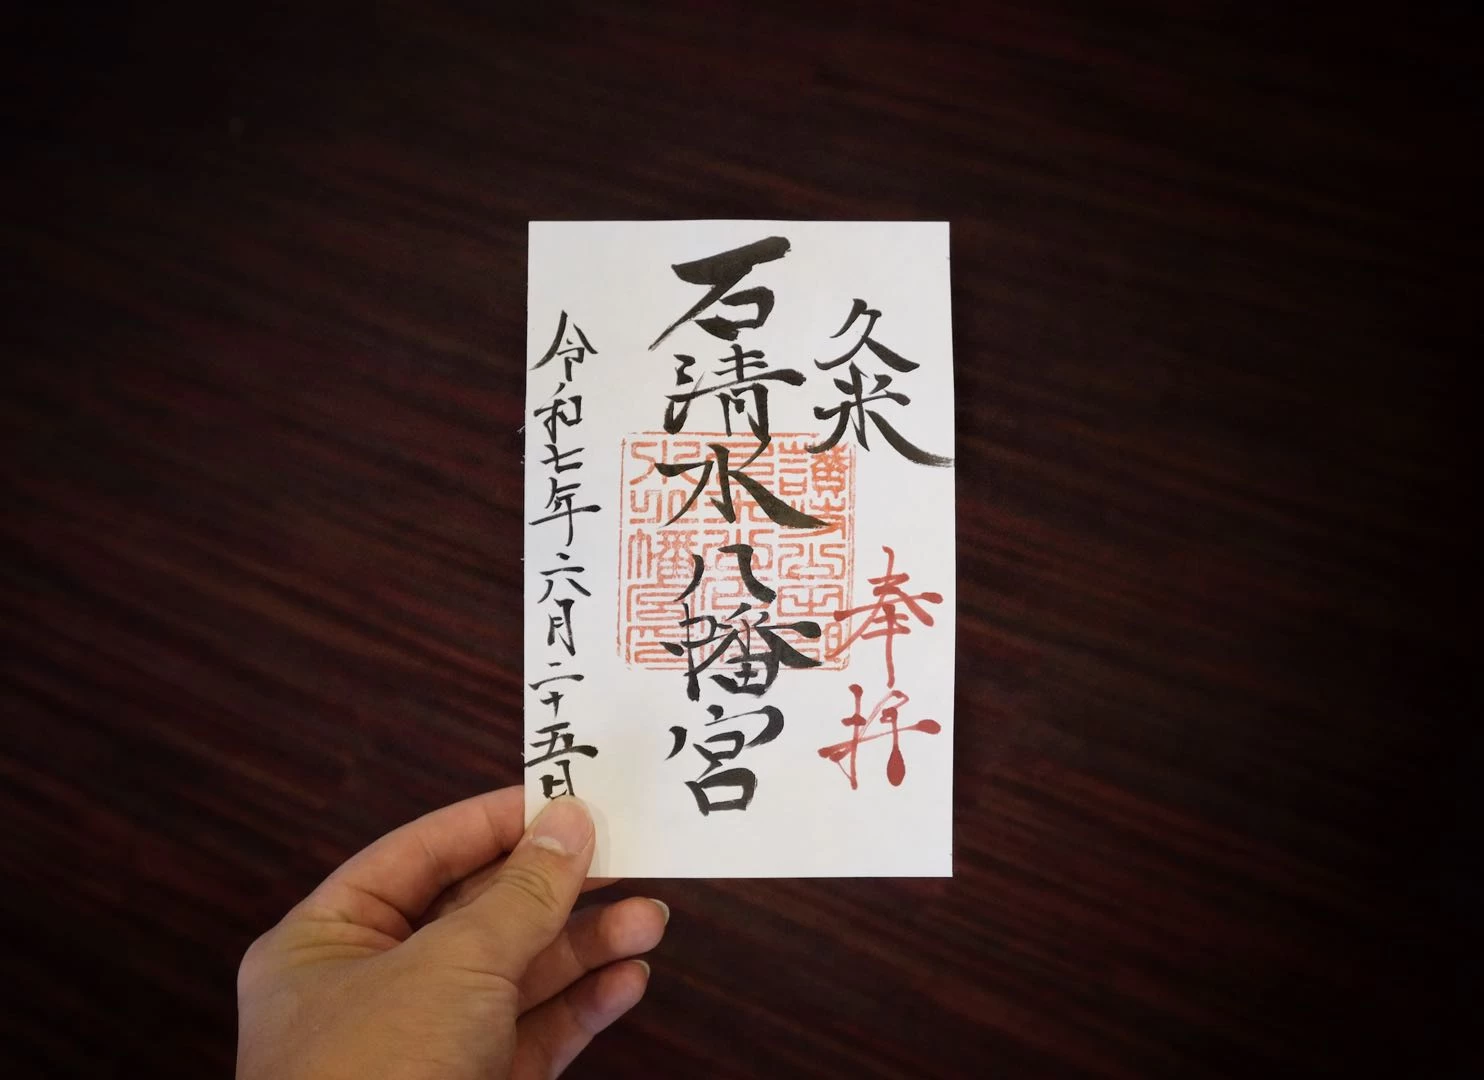 久米
奉拝
石清水八幡宮
水八幡宮印
令和七年六月二十五日